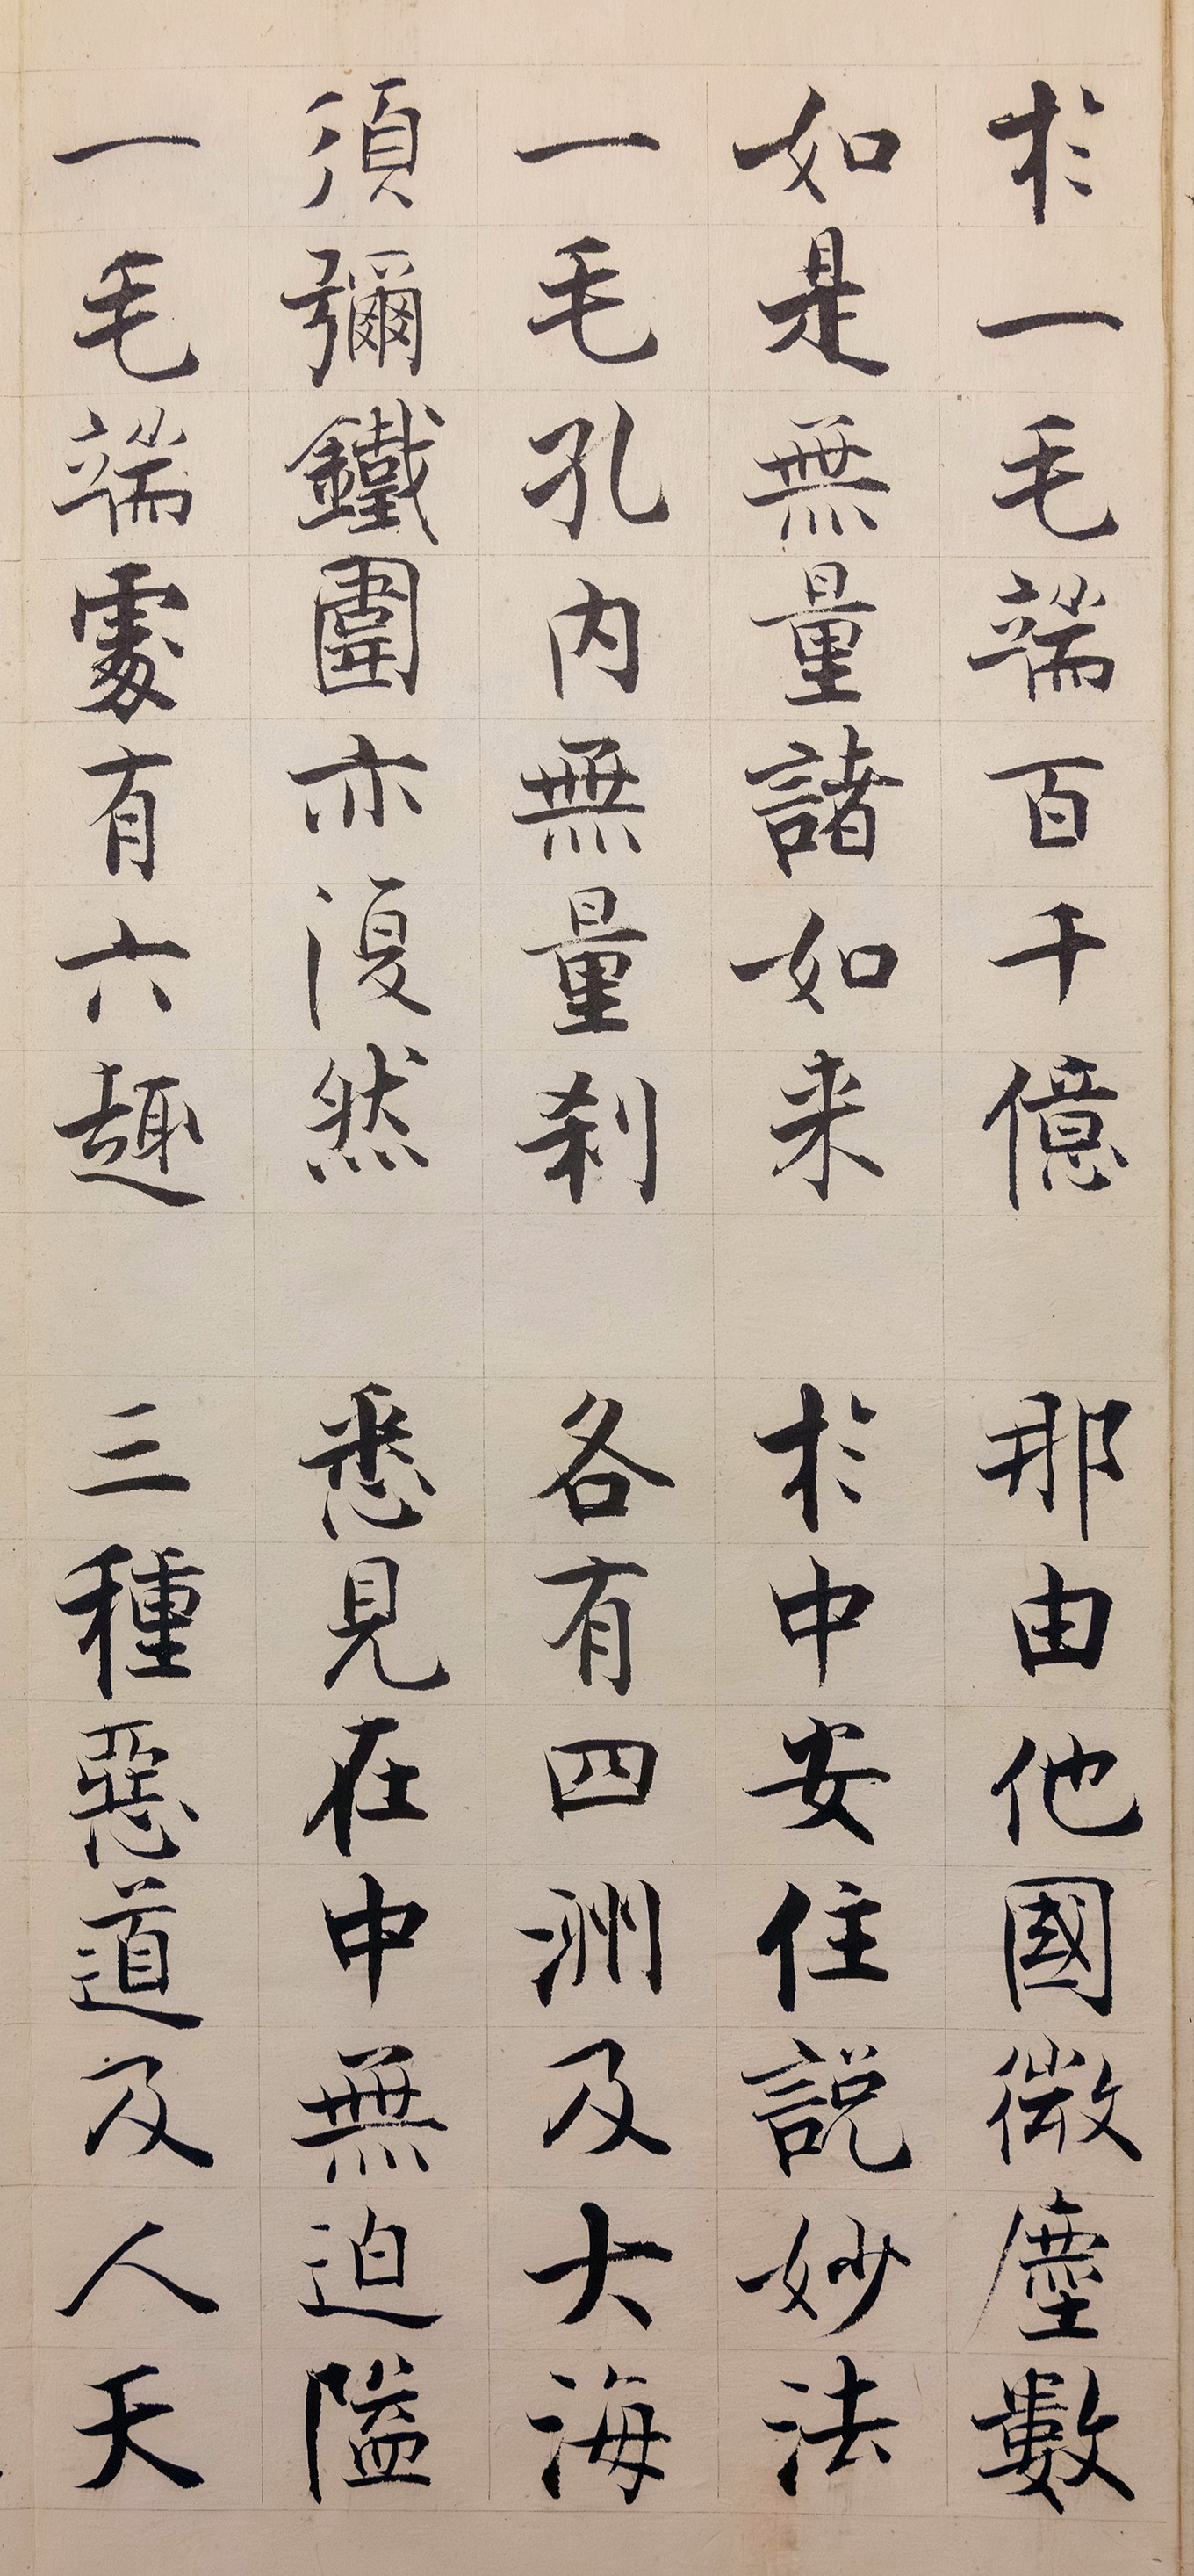 於一毛端百千億 那由他國微塵數
如是無量諸如来 於中安住說妙法
一毛孔內無量刹 各有四洲及大海
須彌鐵圍亦復然 悉見在中無迫隘
一毛端處有六趣 三種惡道及人天